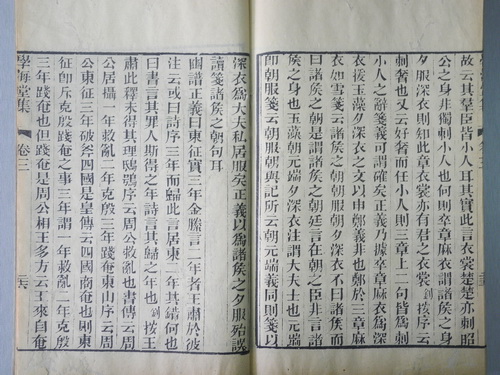 故云其羣臣皆小人耳其實此言衣裳楚楚亦刺昭
公之身非獨刺小人也何則卒章麻衣謂諸矦之身
夕服深衣則知此章衣裳亦有君之衣裳劉按序云
刺奢也又云好奢而任小人則三章上二句皆爲刺
小人之辭箋義可謂確矣正義乃據卒章麻衣爲深
衣按玉藻夕深衣之文以申鄭義非也鄭於三章麻
衣如雪箋云諸矦之朝朝服朝夕深衣不曰諸矦而
曰諸矦之朝是謂諸矦之朝廷言在朝之臣非言諸
矦之身也玉藻朝元端夕深衣注謂大夫士也元端
卽朝服箋云朝服朝與記所云朝元端義同則箋以
深衣爲大夫私居服矣正義以爲諸矦之夕服殆誤
讀箋諸矦之朝句耳
豳譜正義曰東征實三年金縢言二年者王肅於彼
注云或曰詩序三年而歸此言居東二年其錯何也
曰書言其罪人斯得之年詩言其歸之年也劉按王
肅此釋未得其理鴟鴞序云周公救亂也書傳云周
公居攝一年救亂二年克殷三年踐奄東山序云周
公東征三年破斧四國是皇傳云四國商奄也則東
征卽斥克殷踐奄之事三年謂一年救亂二年克殷
三年踐奄也但踐奄是周公相王多方云王來自奄
學海堂集
卷三